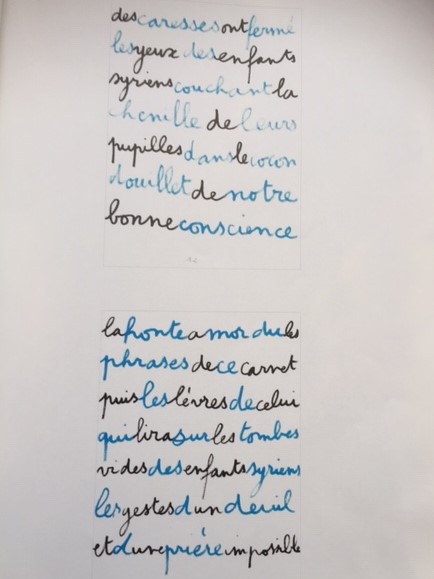 des caresses ont fermé
les yeux des enfants
syriens couchant la
chenille de leurs
pupilles dans le cocon
douillet de notre
bonne conscience
12
la honte a mordu les
phrases de ce carnet
puis les lèvres de celui
qui lira sur les tombes
vides des enfants syriens
les gestes d un deuil
et d une prière impossible